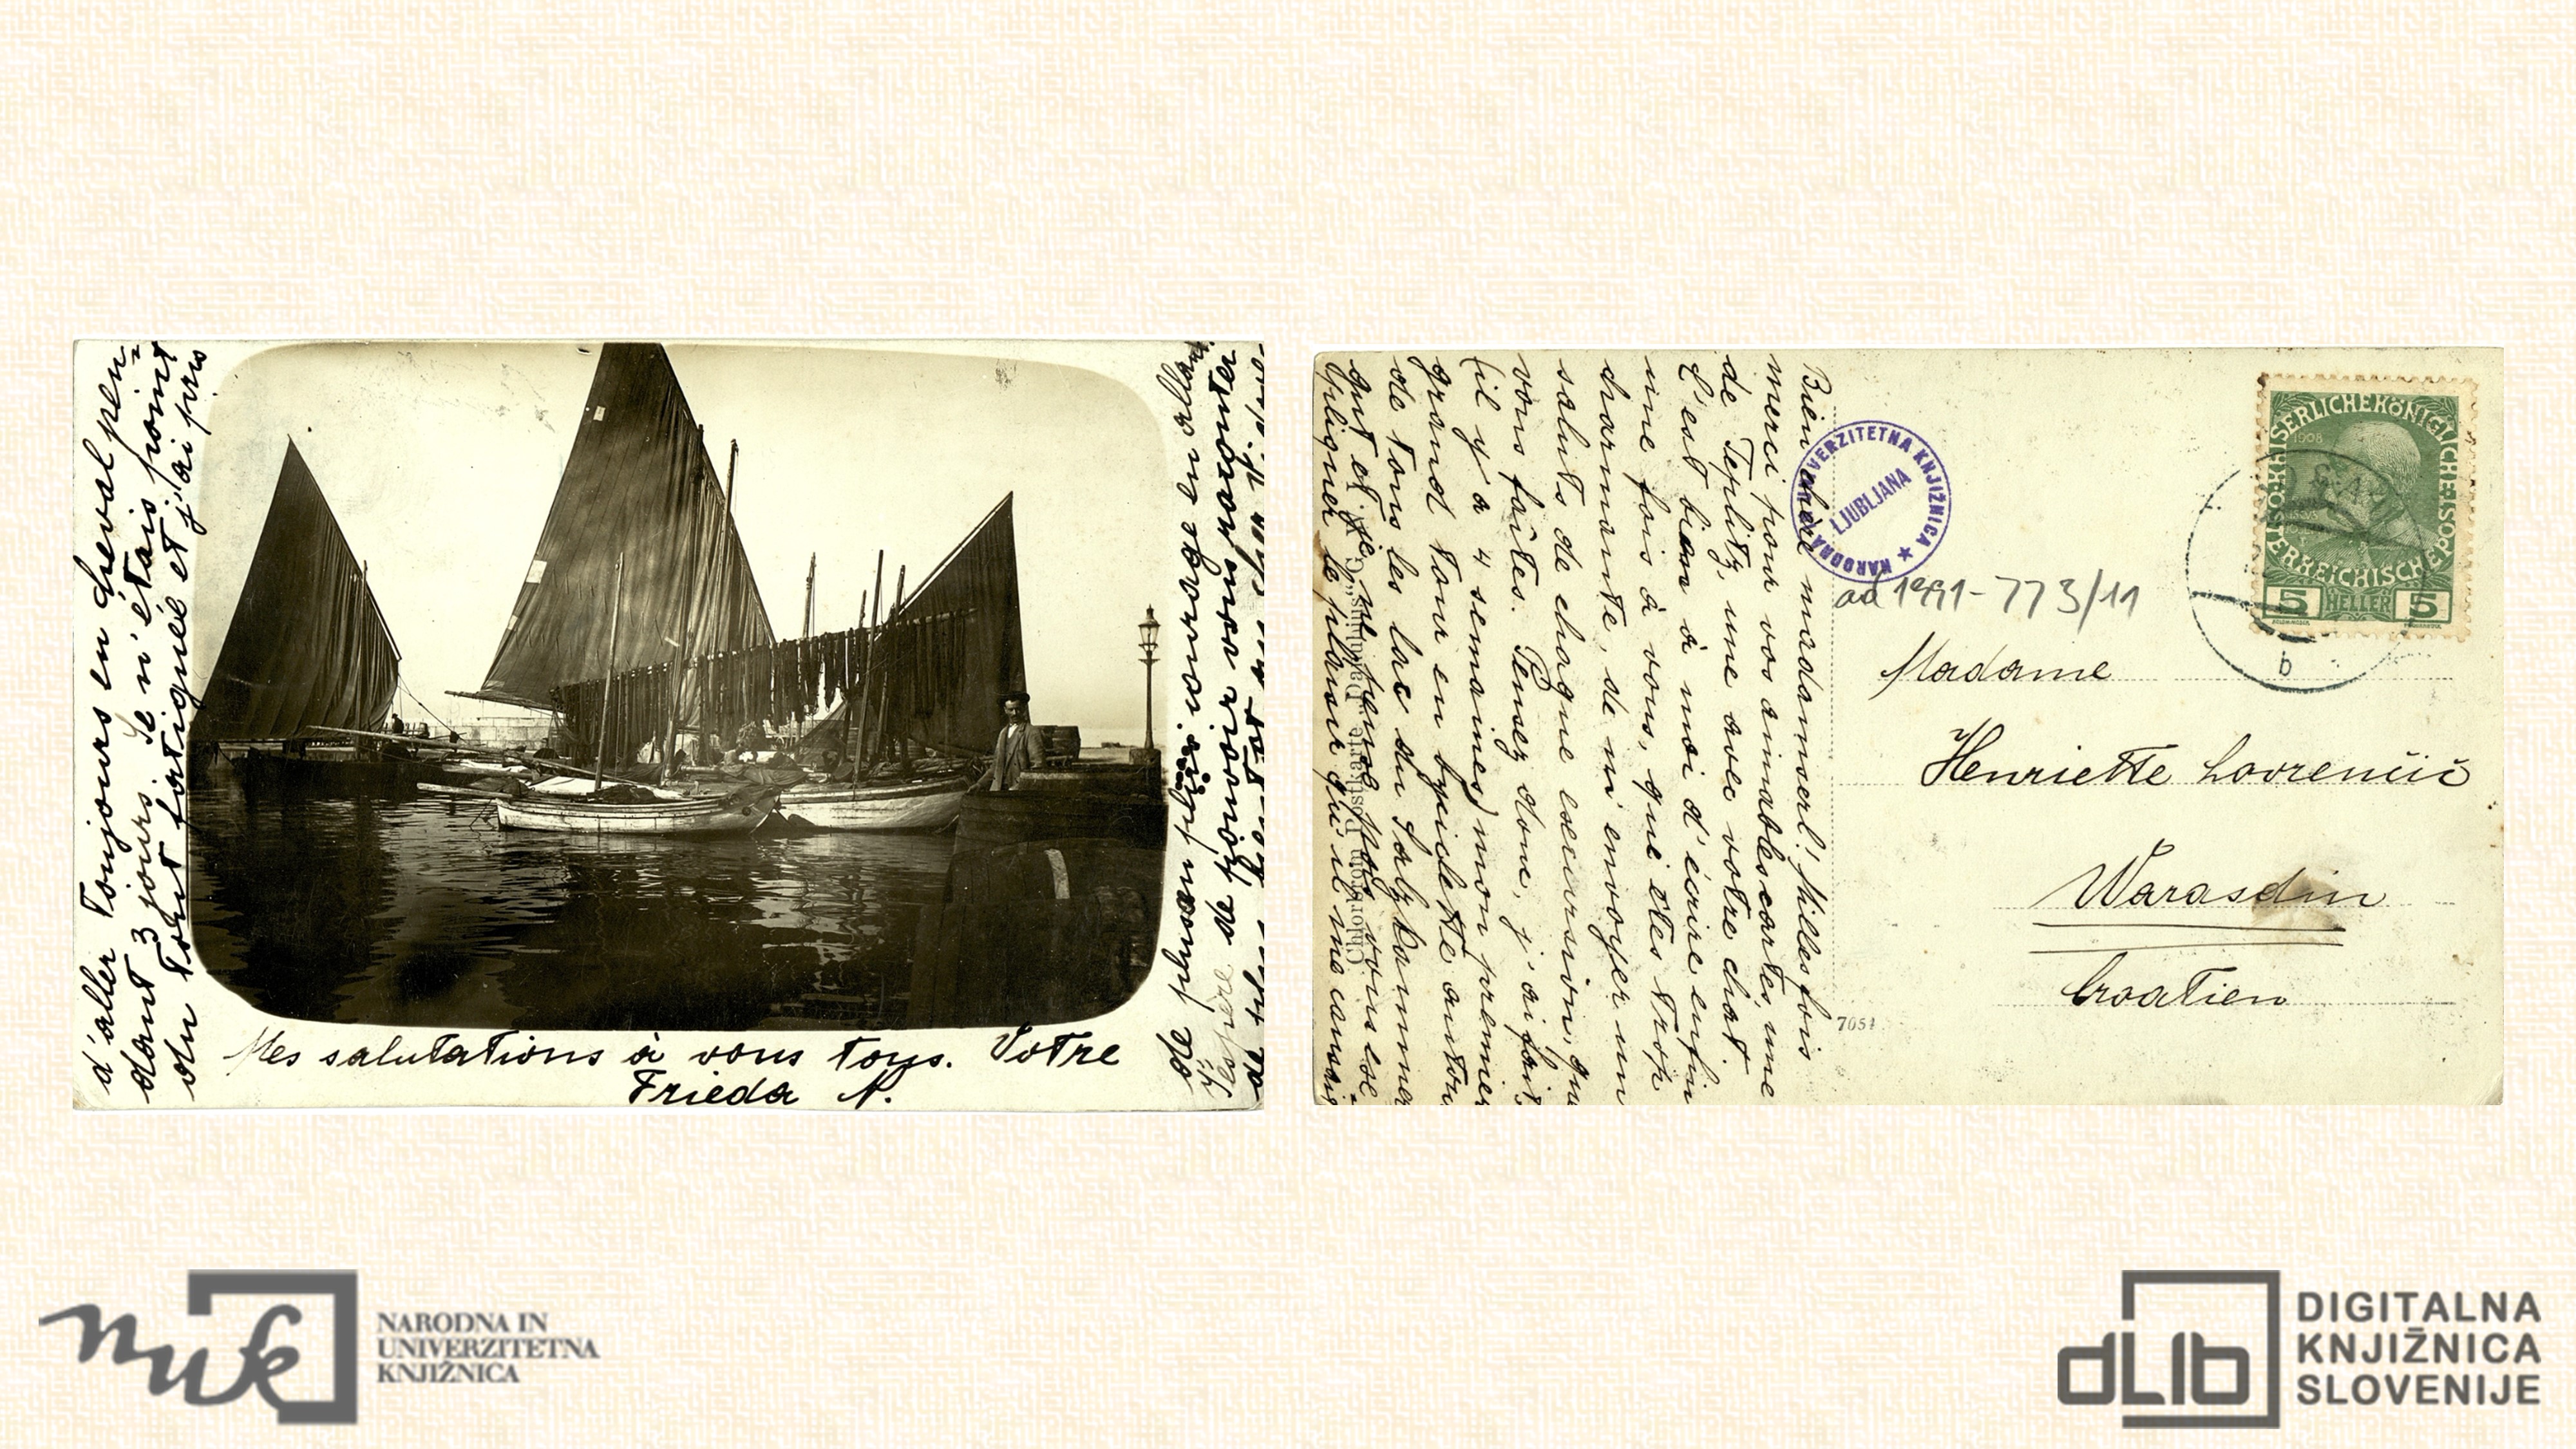 d'aller toujours en cheval pen=
dant 3 jours. Je n'étais point
du tout fatiguée et j'ai pris
de plus en plus courage en allant.
J'espère de pouvoir vous raconter
de plus
Mes salutations à vous tous. Votre
Frieda N.
Bien chère madamserl! Milles fois
merci pour vos aimables cartes, une
de Teplitz, une avec votre chat.
C'est bien à moi d'écrire enfin
une fois à vous, qui êtes trop
charmante, de m'envoyer un
saluts de chaque excursion, que
vous faites. Pensez donc, j'ai fait
(il y a 4 semaines) mon premier
grand tour en byciclette autour
de tous les lac du Salzkammer
gut et je ne peux pas vous ex=
pliquer le plaisir qu'il me causait
NARODNA UNIVERZITETNA KNJIŽNICA ★
LJUBLJANA
ad 1991-773/11
KAISERLICHE KÖNIGLICHE ÖSTERREICHISCHE POST
1908
5 HELLER 5
b
Madame
Henriette Lovrenčič
Warasdin
Croatien
7051
nuk
NARODNA IN
UNIVERZITETNA
KNJIŽNICA
dLib
DIGITALNA
KNJIŽNICA
SLOVENIJE